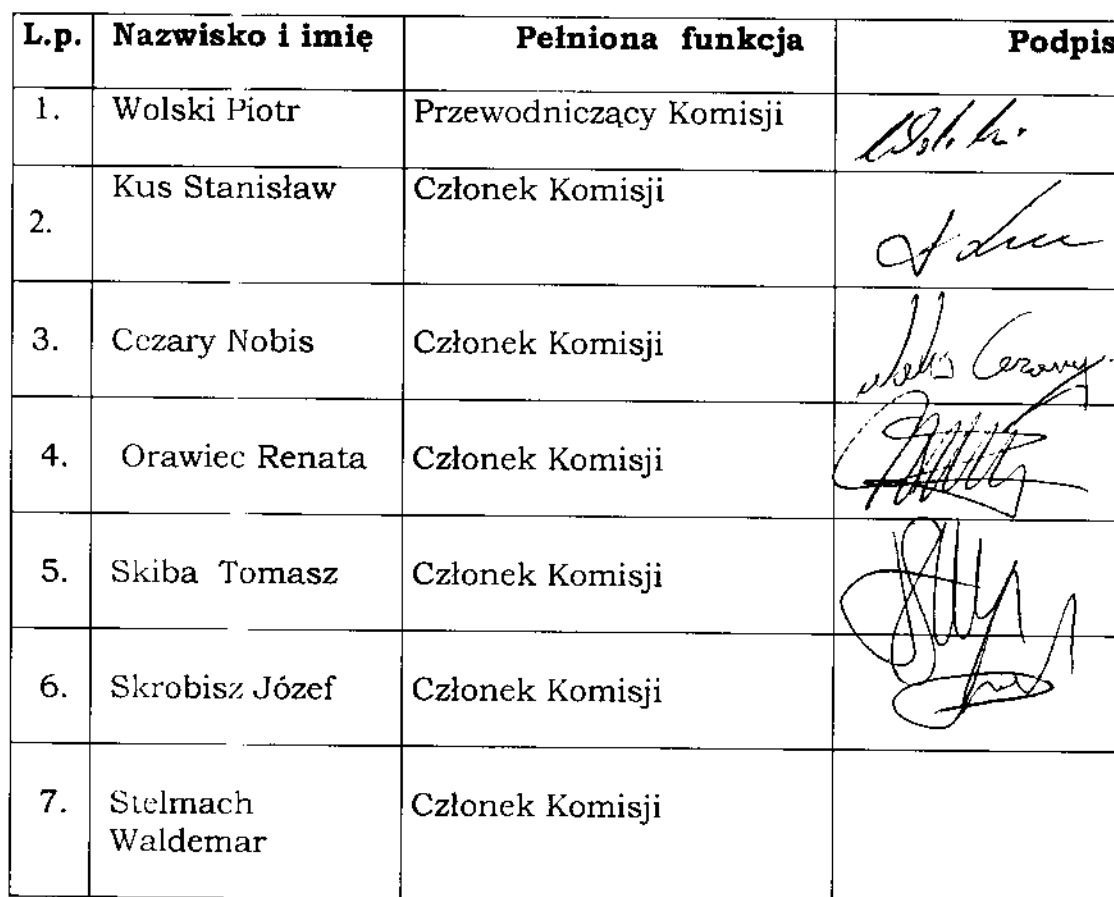 L.p. Nazwisko i imię Pełniona funkcja Podpis
1. Wolski Piotr Przewodniczący Komisji
2. Kus Stanisław Członek Komisji
3. Cezary Nobis Członek Komisji Nobis Cezary
4. Orawiec Renata Członek Komisji
5. Skiba Tomasz Członek Komisji
6. Skrobisz Józef Członek Komisji
7. Stelmach Członek Komisji
Waldemar